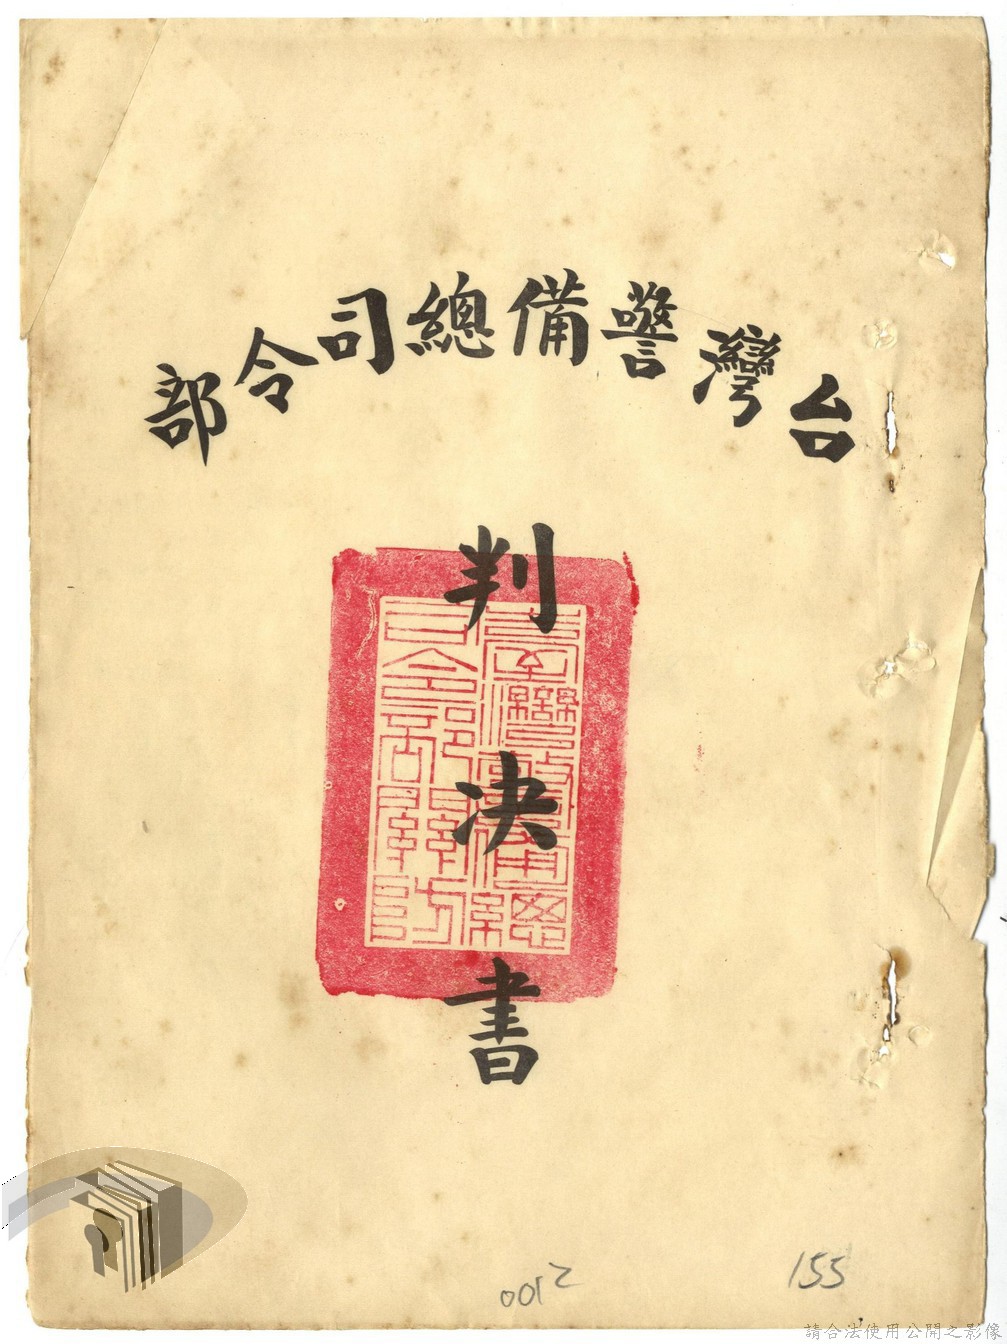 台灣警備總司令部
判決書
臺灣警備總
司令部關防
0012
155
請合法使用公開之影像